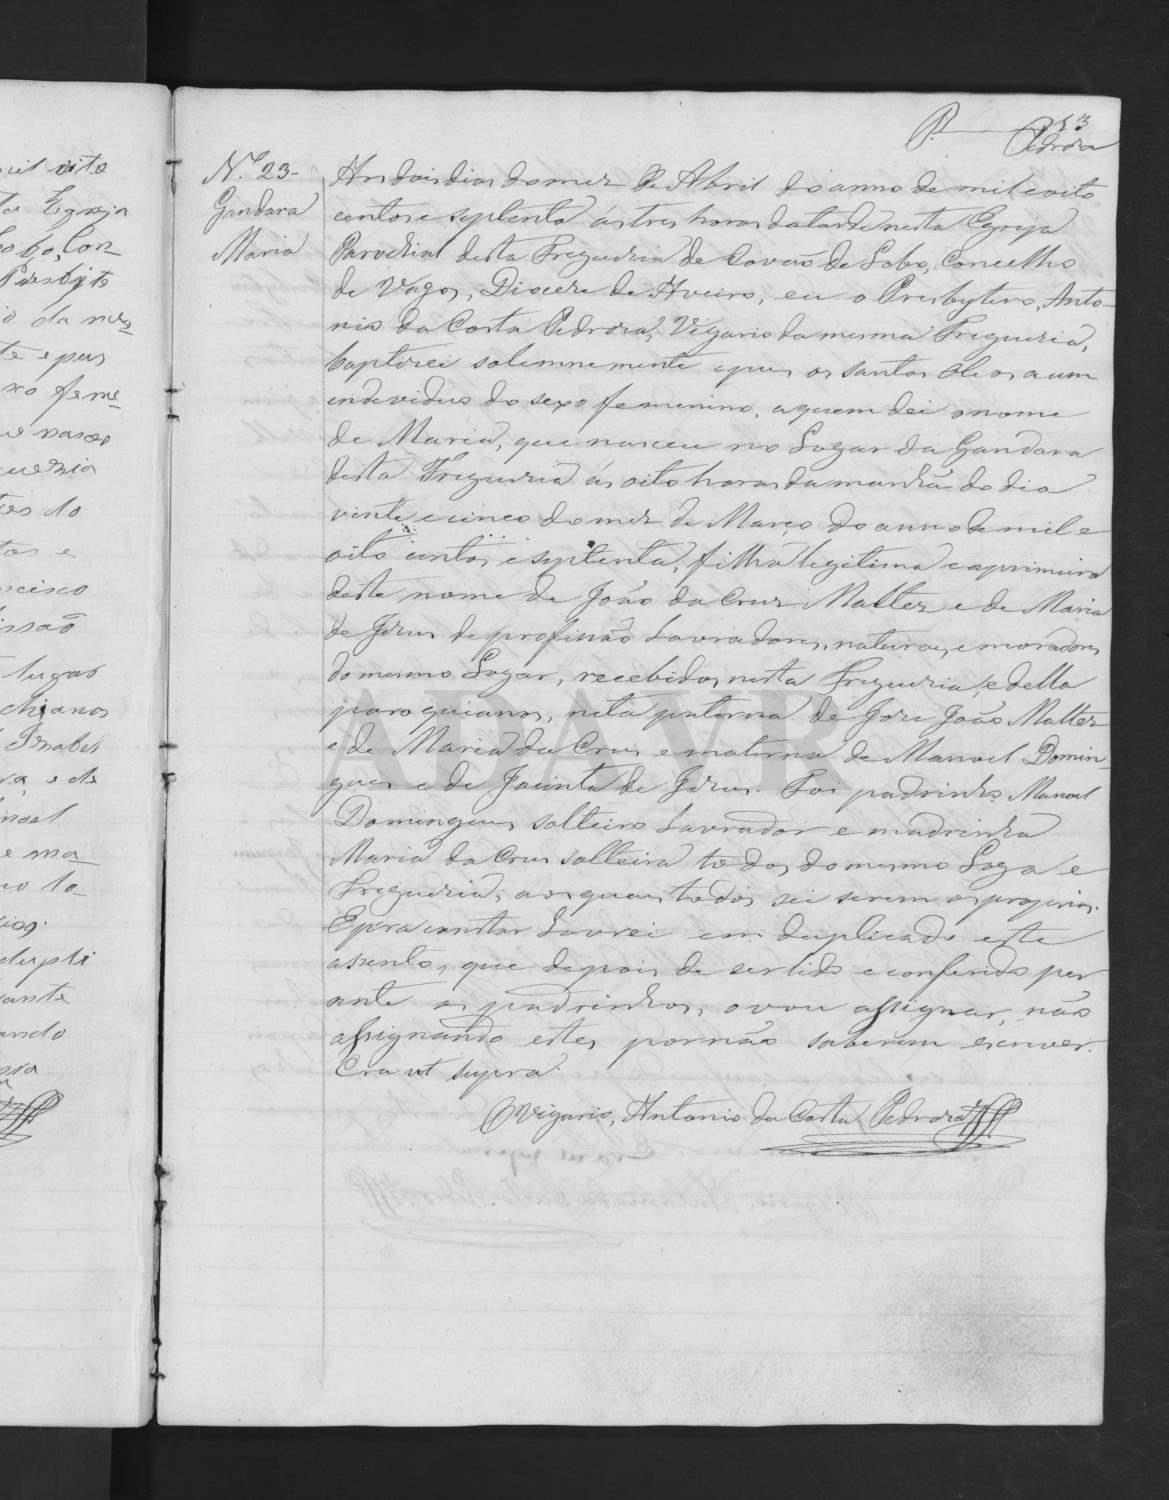 P. 13
Pedroza
N.º 23-
Gandara
Maria
Aos dois dias do mez de Abril do anno de mil e oito
centos e septenta ás tres horas da tarde nesta Egreja
Parochial desta Freguezia de Covão do Lobo, Concelho
de Vagos, Diocese de Aveiro, eu o Presbytero, Anto-
nio da Costa Pedroza, Vigario da mesma Freguezia,
baptizei solemnemente e puz os santos Oleos a um
individuo do sexo femenino, a quem dei o nome
de Maria, que nasceu no Logar da Gandara
desta Freguezia ás oito horas da manhã do dia
vinte e cinco do mez de Março do anno de mil e
oito centos e septenta, filha legitima e a primeira
deste nome de João da Cruz Malter e de Maria
de Jesus de profissão Lavradores, naturaes e moradores
do mesmo Logar, recebidos nesta Freguezia, e della
paroquianos, neta paterna de Jose João Malter
e de Maria da Cruz e materna de Manoel Domin-
gues e de Jacinta de Jesus. Foi padrinho Manoel
Domingues solteiro Lavrador e madrinha
Maria da Cruz solteira todos do mesmo Loga e
Freguezia, aos quaes todos sei serem os proprios.
E pra constar Lavrei em duplicado este
assento, que depois de ser lido e conferido per
ante os padrinhos, o vou assignar, não
assignando estes por não saberem escrever.
Era ut supra.
O Vigario, Antonio da Costa Pedroza
ADAVR
uil oito
ta Egreja
Lobo, Con-
Presbyte
io da mes-
te e puz
xo feme-
ue nasceo
guezia
tes do
tos e
ncisco
issão
lugar
chianos
Izabel
ra, e de
noel
e ma-
no lo-
rios.
dupli
ante
ando